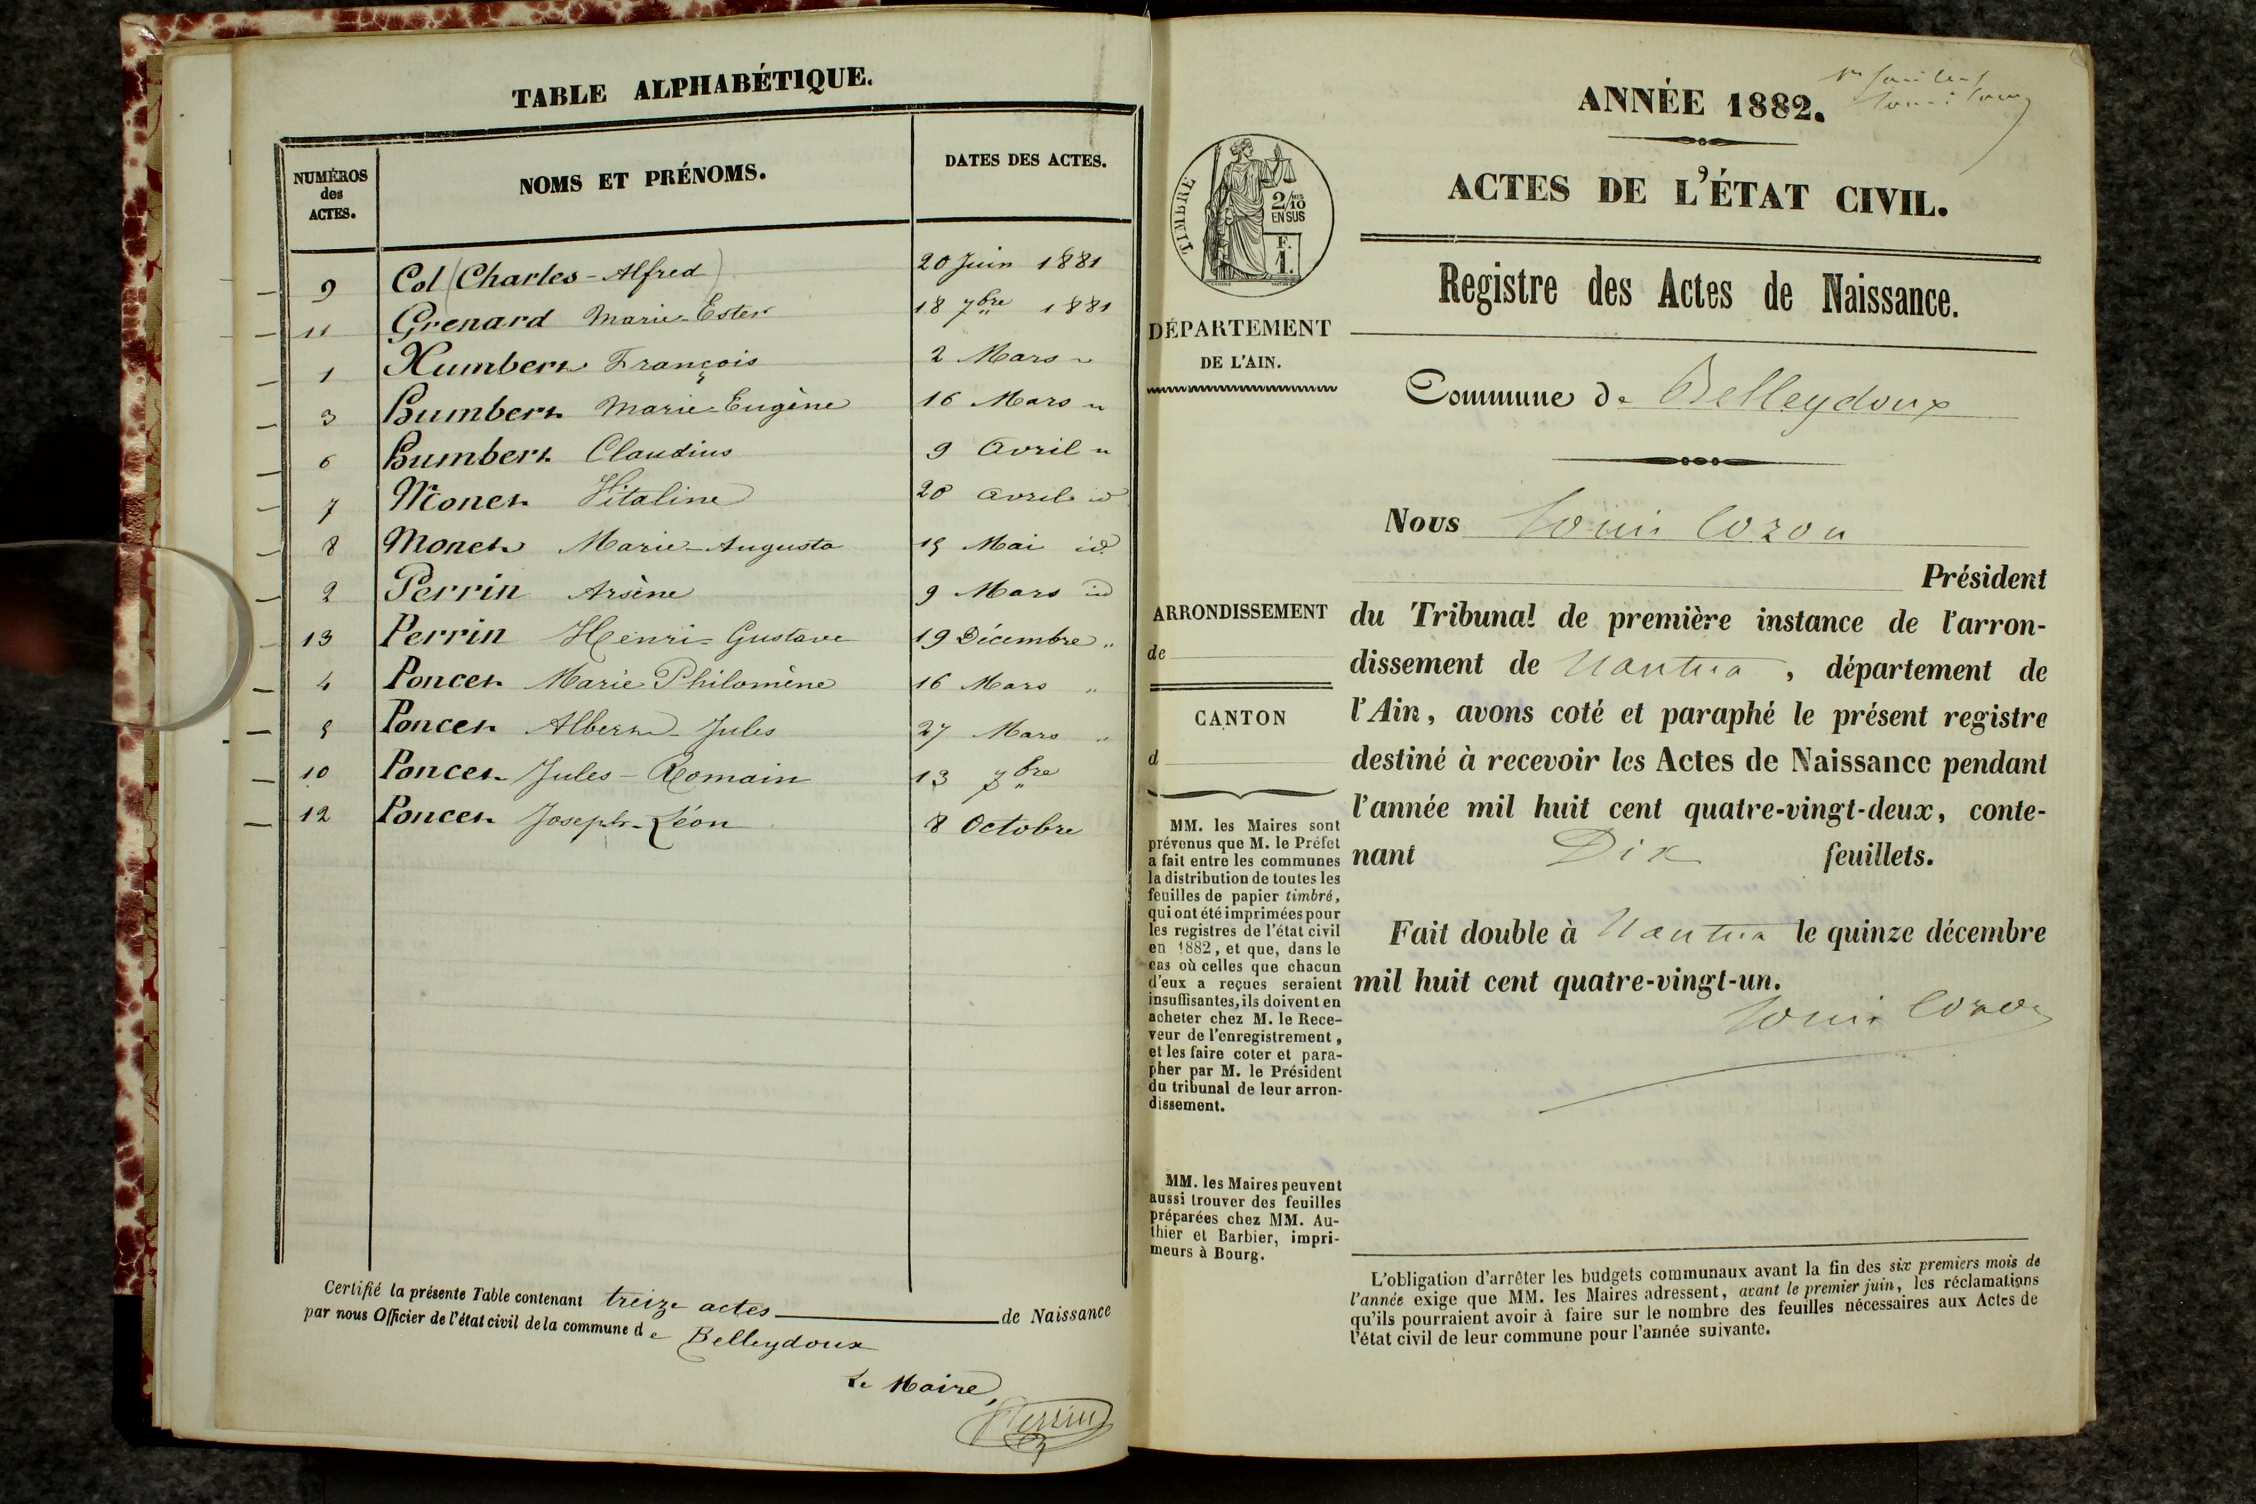 TABLE ALPHABÉTIQUE.
NUMÉROS des ACTES. NOMS ET PRÉNOMS. DATES DES ACTES.
9 Col (Charles-Alfred) 20 Juin 1881
11 Grenard Marie-Ester 18 7bre 1881
1 Humbert François 2 Mars "
3 Humbert Marie-Eugène 16 Mars "
6 Humbert Claudius 9 Avril "
7 Monet Vitaline 20 avril id
8 Monet Marie-Augusta 15 Mai id
2 Perrin Arsène 9 Mars id
13 Perrin Henri-Gustave 19 Décembre "
4 Poncet Marie Philomène 16 Mars "
5 Poncet Albert-Jules 27 Mars "
10 Poncet Jules-Romain 13 7bre "
12 Poncet Joseph-Léon 8 Octobre
Certifié la présente Table contenant treize actes de Naissance
par nous Officier de l'état civil de la commune de Belleydoux
Le Maire,
Perrin
ANNÉE 1882.
ACTES DE L'ÉTAT CIVIL.
TIMBRE
2/10 EN SUS
F. 1.
Registre des Actes de Naissance.
DÉPARTEMENT
DE L'AIN.
Commune de Belleydoux
Nous Louis Cozon
Président
ARRONDISSEMENT
de
CANTON
d
du Tribunal de première instance de l'arron-
dissement de Nantua, département de
l'Ain, avons coté et paraphé le présent registre
destiné à recevoir les Actes de Naissance pendant
l'année mil huit cent quatre-vingt-deux, conte-
nant Dix feuillets.
Fait double à Nantua le quinze décembre
mil huit cent quatre-vingt-un.
Louis Cozon
MM. les Maires sont
prévenus que M. le Préfet
a fait entre les communes
la distribution de toutes les
feuilles de papier timbré,
qui ont été imprimées pour
les registres de l'état civil
en 1882, et que, dans le
cas où celles que chacun
d'eux a reçues seraient
insuffisantes, ils doivent en
acheter chez M. le Rece-
veur de l'enregistrement,
et les faire coter et para-
pher par M. le Président
du tribunal de leur arron-
dissement.
MM. les Maires peuvent
aussi trouver des feuilles
préparées chez MM. Au-
thier et Barbier, impri-
meurs à Bourg.
L'obligation d'arrêter les budgets communaux avant la fin des six premiers mois de
l'année exige que MM. les Maires adressent, avant le premier juin, les réclamations
qu'ils pourraient avoir à faire sur le nombre des feuilles nécessaires aux Actes de
l'état civil de leur commune pour l'année suivante.